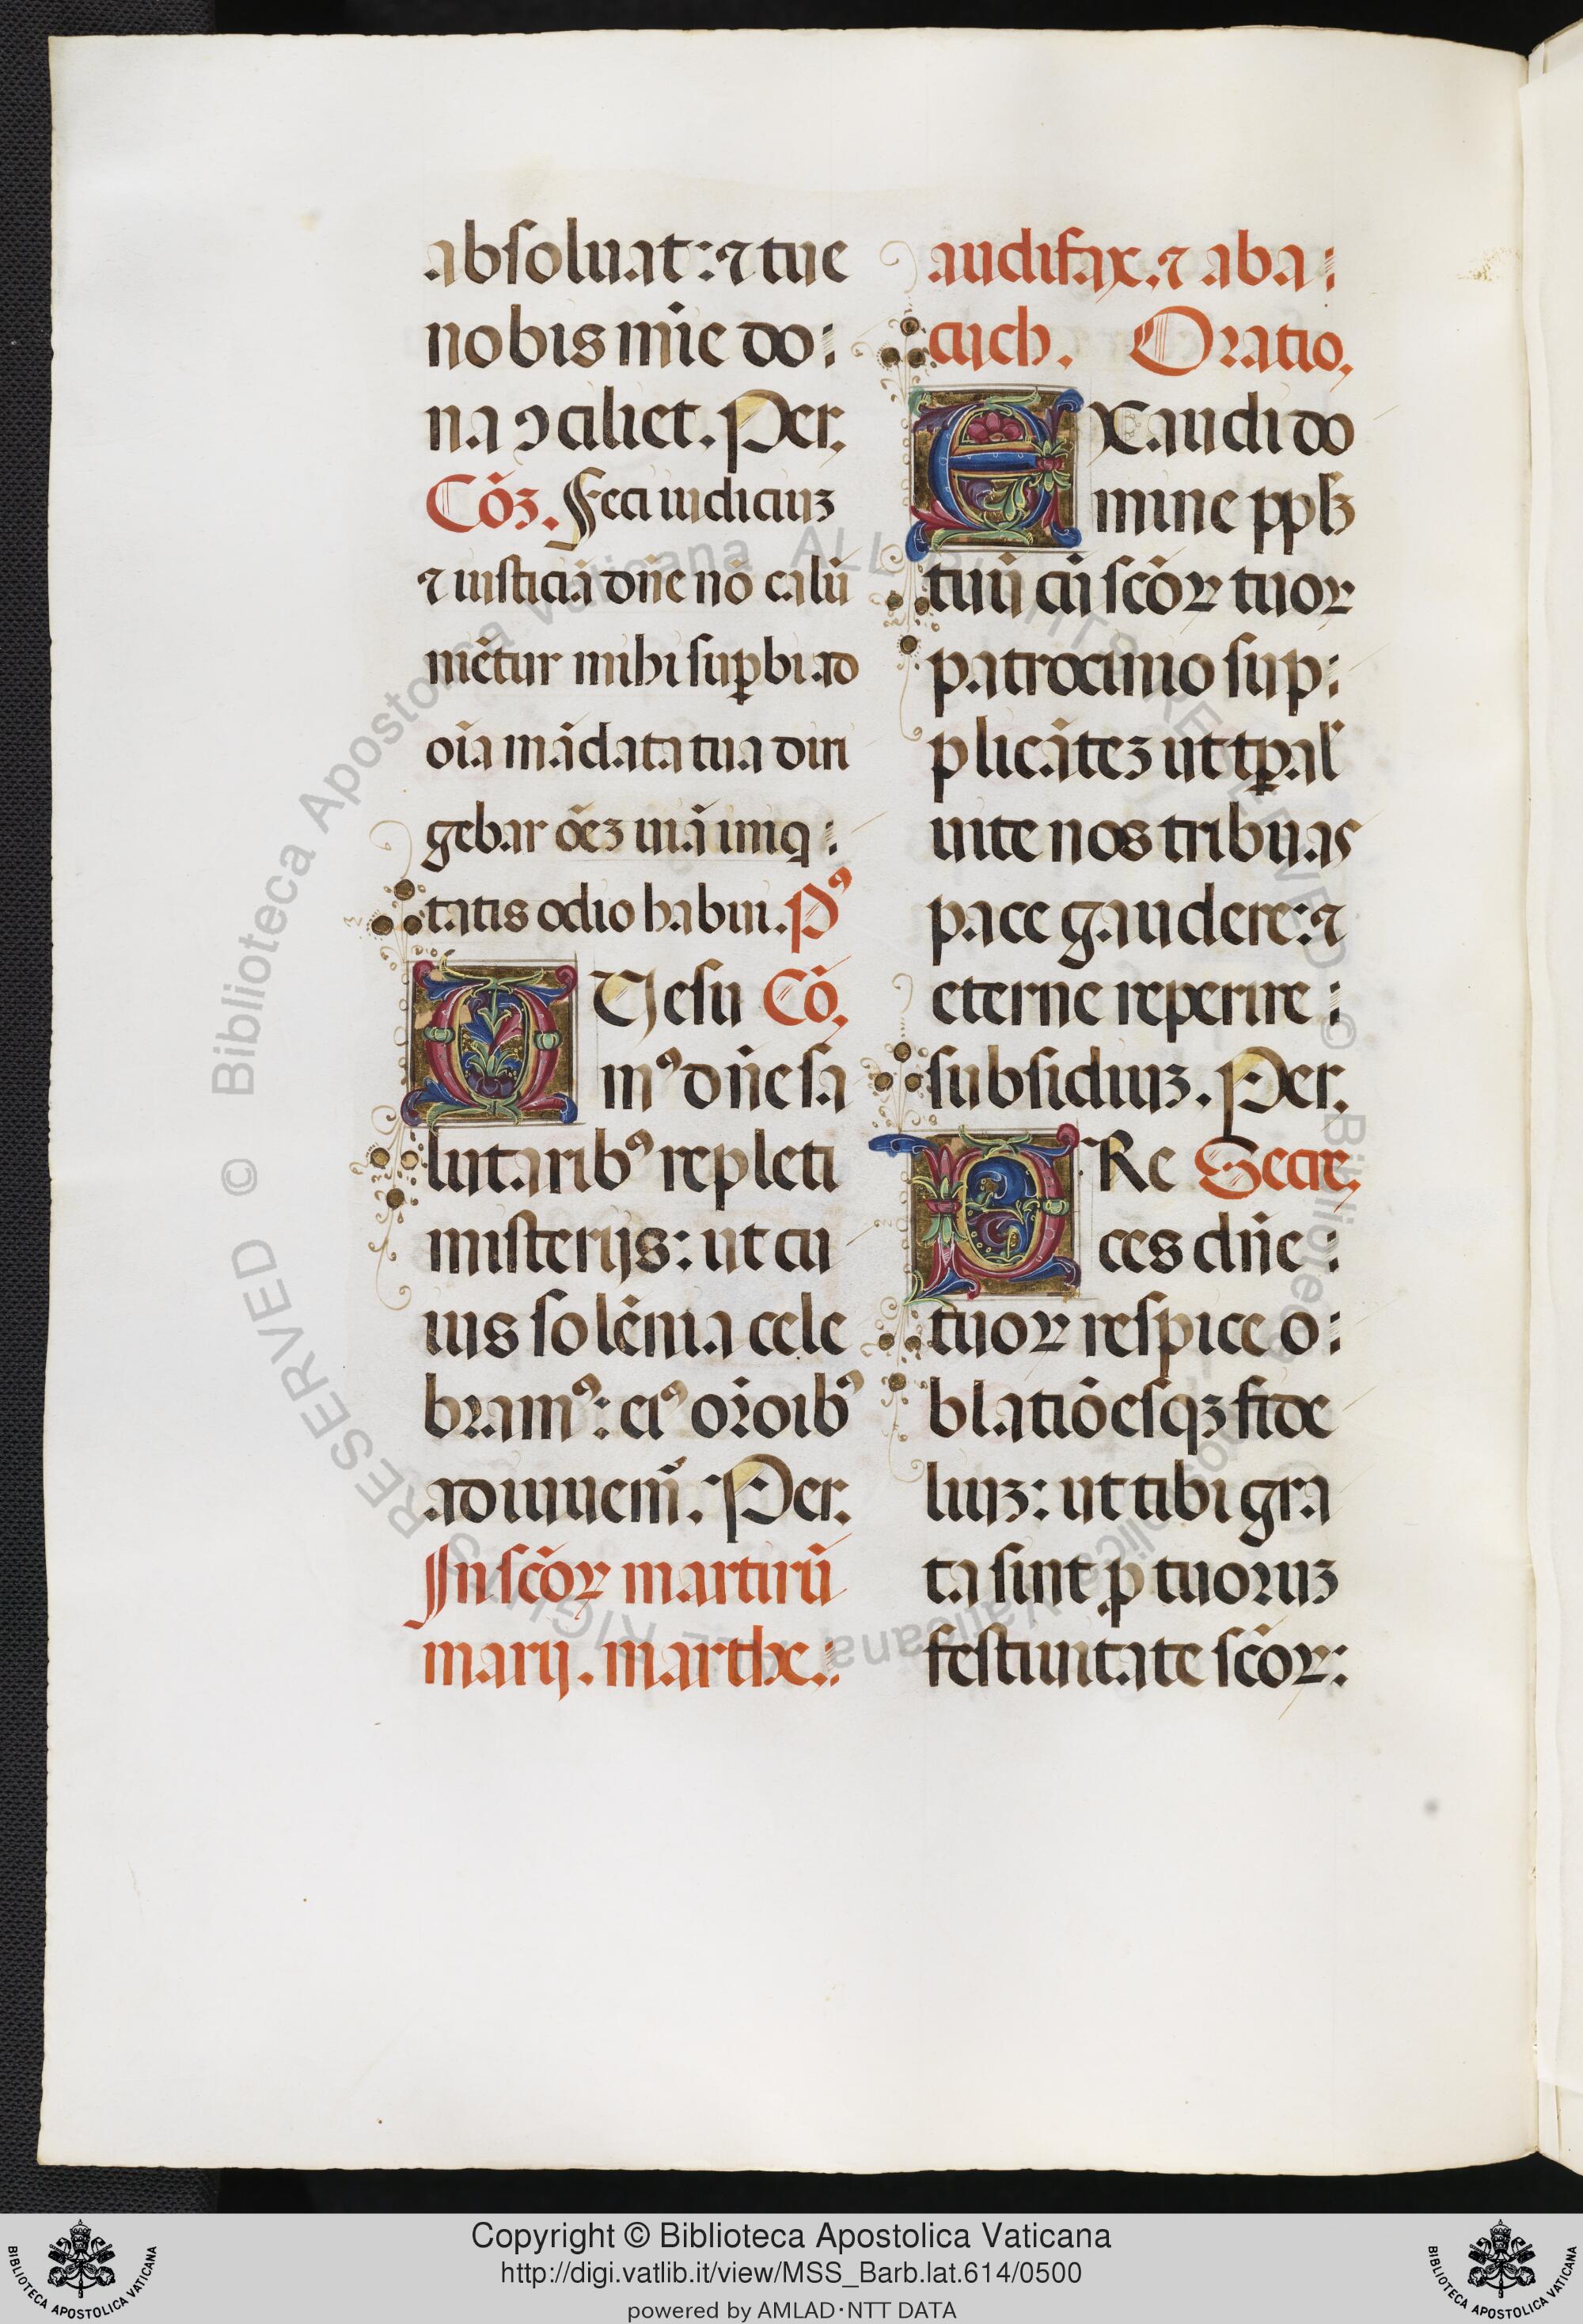 absoluat: ⁊ tue
nobis mīe do:
na ↄciliet. Per.
Cōꝫ. Feci iudiciuꝫ
⁊ iusticiā dn̄e nō calū
niētur mihi suꝑbi ad
oīa mādata tua diri
gebar oēꝫ uiā iniq:
tatis odio habui. Pꝰ
QVesu Cō.
mꝰ dn̄e sa
lutaribꝰ repleti
misterijs: ut cu
ius solēnia cele
bramꝰ: eiꝰ orōibꝰ
adiuuem̄. Per.
In scōꝝ martirū
marij. marthe.:
audifax. ⁊ aba:
cuch. Oratio.
EXaudi do
mine ppłꝫ
tuū cū scōꝝ tuoꝝ
patrocinio sup:
plicāteꝫ ut tꝑal̄
uite nos tribuas
pace gaudere: ⁊
eterne reperire:
subsidiuꝫ. Per.
PRe Secre.
ces dn̄e:
tuoꝝ respice o:
blatiōesqꝫ fide
liuꝫ: ut tibi gra
ta sint ꝓ tuoruꝫ
festiuitate scōꝝ:
© Biblioteca Apostolica Vaticana ALL RIGHTS RESERVED © Biblioteca Apostolica Vaticana ALL RIGHTS RESERVED
Copyright © Biblioteca Apostolica Vaticana
http://digi.vatlib.it/view/MSS_Barb.lat.614/0500
powered by AMLAD·NTT DATA
BIBLIOTECA APOSTOLICA VATICANA
BIBLIOTECA APOSTOLICA VATICANA